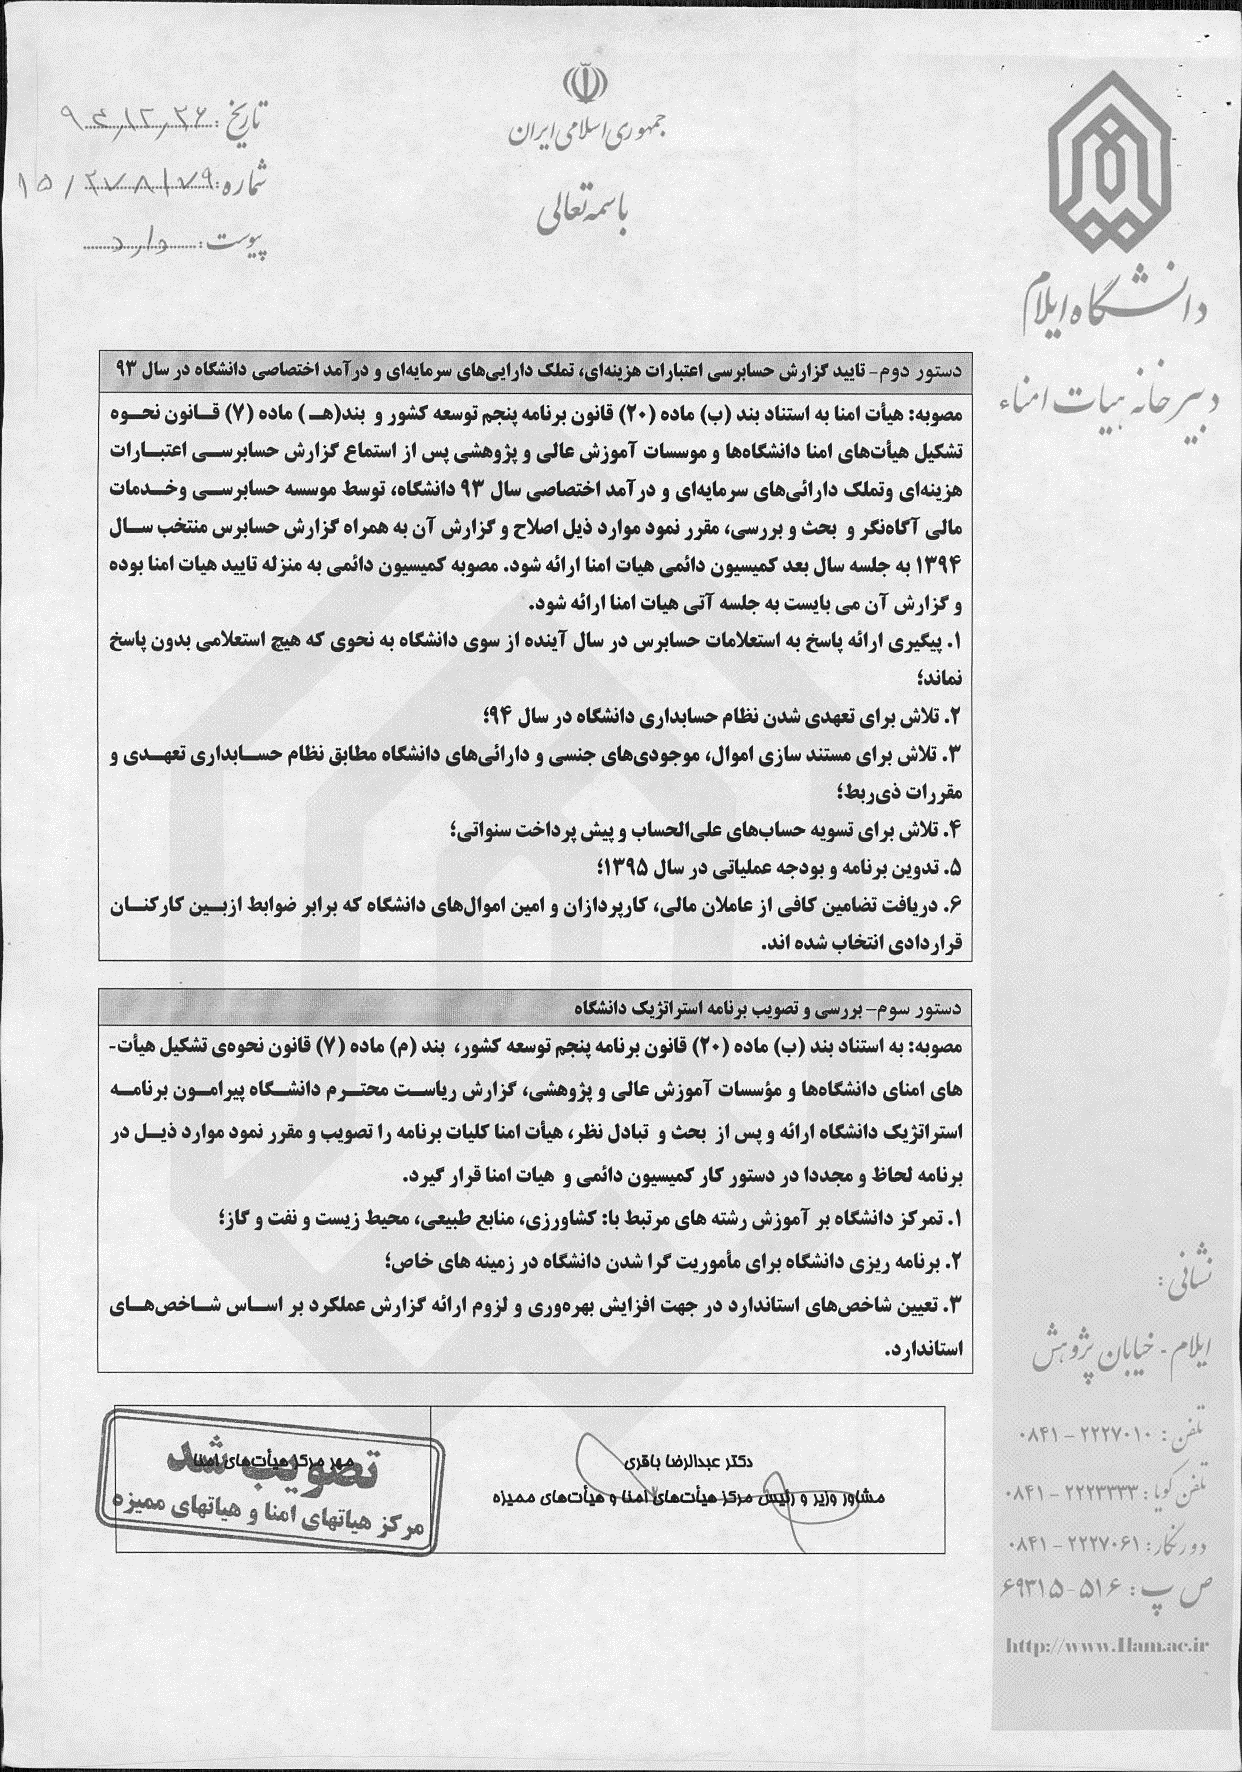 جمهوری اسلامی ایران
باسمه تعالی
تاریخ: ۹۴/۱۲/۲۶
شماره: ۱۵/۲۷۸۱۷۹
پیوست: دارد
دانشگاه ایلام
دبیرخانه هیات امناء
دستور دوم- تایید گزارش حسابرسی اعتبارات هزینه‌ای، تملک دارایی‌های سرمایه‌ای و درآمد اختصاصی دانشگاه در سال ۹۳
مصوبه: هیأت امنا به استناد بند (ب) ماده (۲۰) قانون برنامه پنجم توسعه کشور و بند(هـ) ماده (۷) قانون نحوه
تشکیل هیأت‌های امنا دانشگاه‌ها و موسسات آموزش عالی و پژوهشی پس از استماع گزارش حسابرسی اعتبارات
هزینه‌ای وتملک دارائی‌های سرمایه‌ای و درآمد اختصاصی سال ۹۳ دانشگاه، توسط موسسه حسابرسی وخدمات
مالی آگاه‌نگر و بحث و بررسی، مقرر نمود موارد ذیل اصلاح و گزارش آن به همراه گزارش حسابرس منتخب سال
۱۳۹۴ به جلسه سال بعد کمیسیون دائمی هیات امنا ارائه شود. مصوبه کمیسیون دائمی به منزله تایید هیات امنا بوده
و گزارش آن می بایست به جلسه آتی هیات امنا ارائه شود.
۱. پیگیری ارائه پاسخ به استعلامات حسابرس در سال آینده از سوی دانشگاه به نحوی که هیچ استعلامی بدون پاسخ
نماند؛
۲. تلاش برای تعهدی شدن نظام حسابداری دانشگاه در سال ۹۴؛
۳. تلاش برای مستند سازی اموال، موجودی‌های جنسی و دارائی‌های دانشگاه مطابق نظام حسابداری تعهدی و
مقررات ذی‌ربط؛
۴. تلاش برای تسویه حساب‌های علی‌الحساب و پیش پرداخت سنواتی؛
۵. تدوین برنامه و بودجه عملیاتی در سال ۱۳۹۵؛
۶. دریافت تضامین کافی از عاملان مالی، کارپردازان و امین اموال‌های دانشگاه که برابر ضوابط ازبین کارکنان
قراردادی انتخاب شده اند.
دستور سوم- بررسی و تصویب برنامه استراتژیک دانشگاه
مصوبه: به استناد بند (ب) ماده (۲۰) قانون برنامه پنجم توسعه کشور، بند (م) ماده (۷) قانون نحوه‌ی تشکیل هیأت-
های امنای دانشگاه‌ها و مؤسسات آموزش عالی و پژوهشی، گزارش ریاست محترم دانشگاه پیرامون برنامه
استراتژیک دانشگاه ارائه و پس از بحث و تبادل نظر، هیأت امنا کلیات برنامه را تصویب و مقرر نمود موارد ذیل در
برنامه لحاظ و مجددا در دستور کار کمیسیون دائمی و هیات امنا قرار گیرد.
۱. تمرکز دانشگاه بر آموزش رشته های مرتبط با: کشاورزی، منابع طبیعی، محیط زیست و نفت و گاز؛
۲. برنامه ریزی دانشگاه برای مأموریت گرا شدن دانشگاه در زمینه های خاص؛
۳. تعیین شاخص‌های استاندارد در جهت افزایش بهره‌وری و لزوم ارائه گزارش عملکرد بر اساس شاخص‌های
استاندارد.
دکتر عبدالرضا باقری
مشاور وزیر و رئیس مرکز هیأت‌های امنا و هیأت‌های ممیزه
مهر مرکز هیأت‌های امنا
تصویب شد
مرکز هیاتهای امنا و هیاتهای ممیزه
نشانی:
ایلام - خیابان پژوهش
تلفن: ۲۲۲۷۰۱۰ - ۰۸۴۱
تلفن گویا: ۲۲۲۳۳۳۳ - ۰۸۴۱
دورنگار: ۲۲۲۷۰۶۱ - ۰۸۴۱
ص پ: ۵۱۶-۶۹۳۱۵
http://www.Ilam.ac.ir